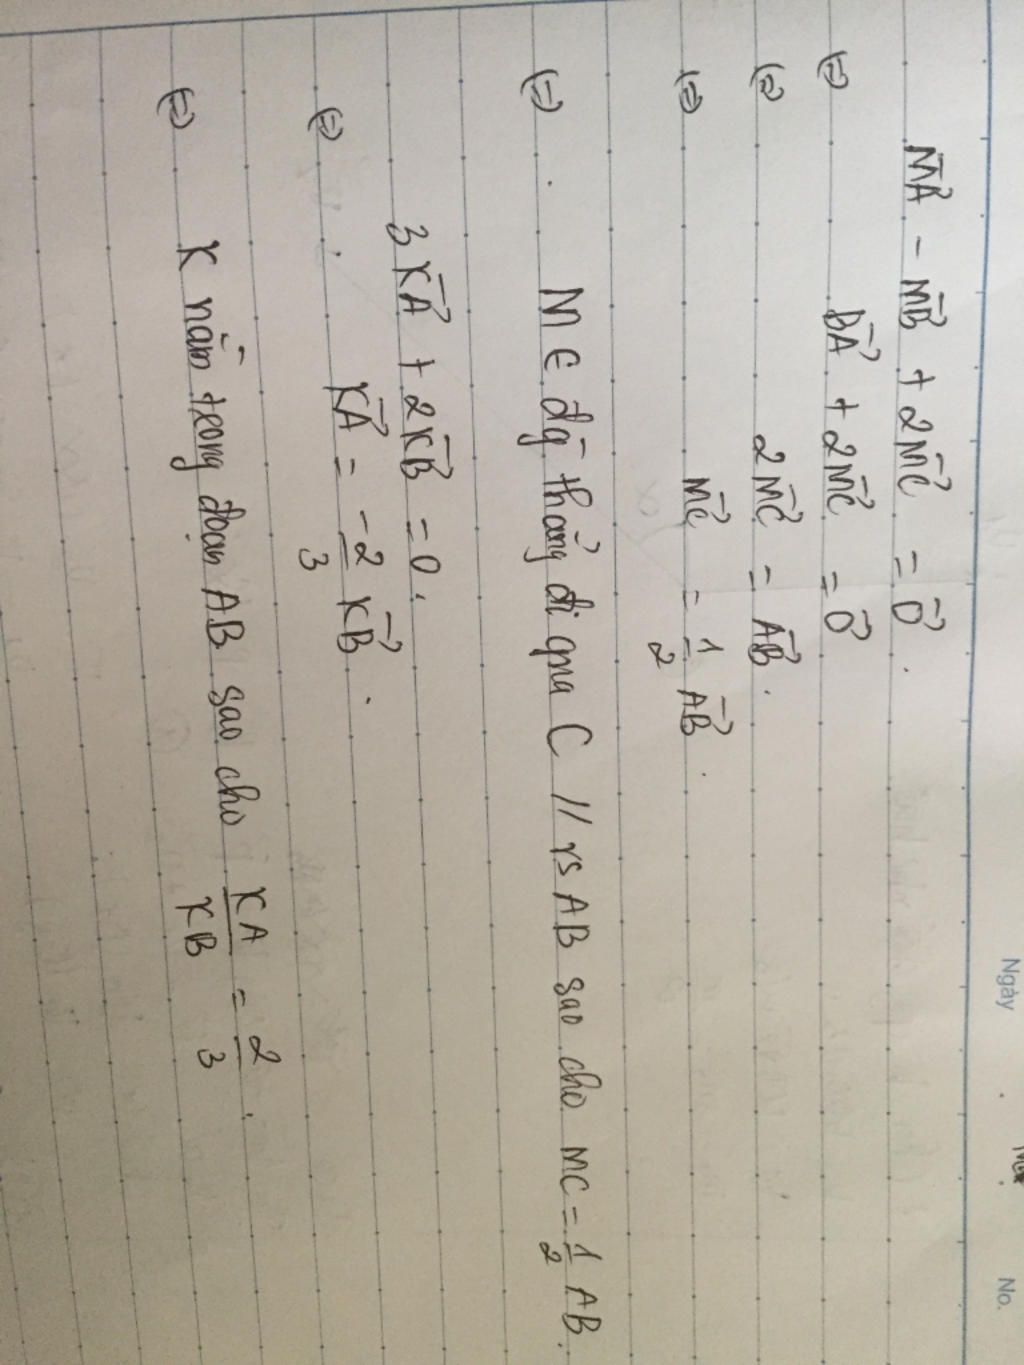 Ngày No.
MA⃗ - MB⃗ + 2MC⃗ = O⃗.
(=) BA⃗ + 2MC⃗ = O⃗
(=) 2MC⃗ = AB⃗.
(=) MC⃗ = 1/2 AB⃗.
(=) . M ∈ đg̅ thẳng đi qua C // vs AB sao cho MC = 1/2 AB.
3KA⃗ + 2KB⃗ = 0.
(=) . KA⃗ = -2/3 KB⃗.
(=) K nằm trong đoạn AB sao cho KA/KB = 2/3.